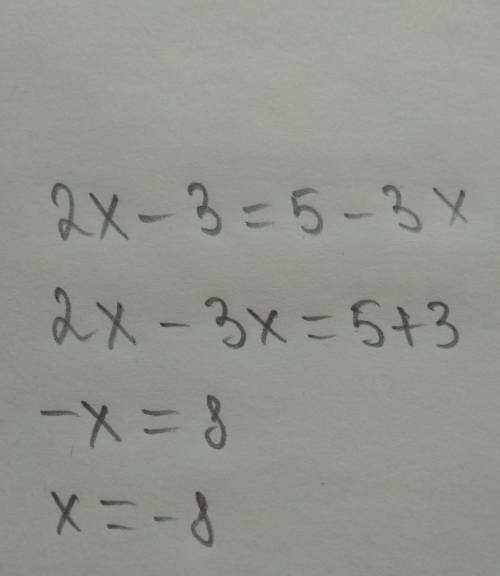 2x - 3 = 5 - 3x
2x - 3x = 5 + 3
-x = 8
x = -8